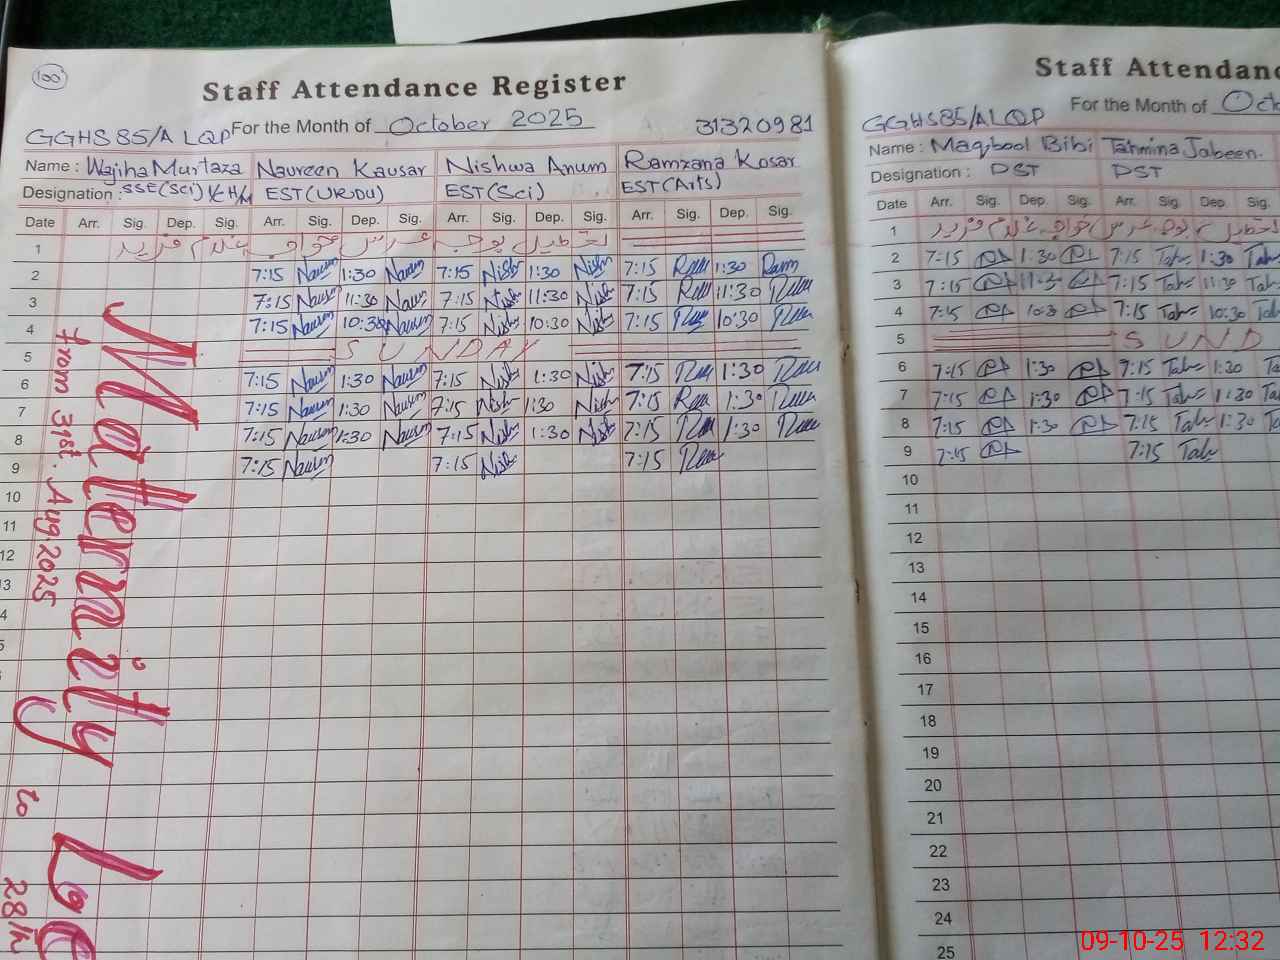 100
Staff Attendance Register
GGHS 85/A LQP For the Month of October 2025 31320981
Name : Wajiha Murtaza Naureen Kausar Nishwa Anum Ramzana Kosar
Designation : SSE(Sci) EST(URDU) EST(Sci) EST(Arts)
Date Arr. Sig. Dep. Sig. Arr. Sig. Dep. Sig. Arr. Sig. Dep. Sig. Arr. Sig. Dep. Sig.
1 تعطیل بوجہ عرس خواجہ غلام فرید
2 7:15 Naureen 1:30 Naureen 7:15 Nish 1:30 Nish 7:15 Ram 1:30 Ram
3 7:15 Naureen 11:30 Naureen 7:15 Nish 11:30 Nish 7:15 Ram 11:30 Ram
4 7:15 Naureen 10:30 Naureen 7:15 Nish 10:30 Nish 7:15 Ram 10:30 Ram
5 SUNDAY
6 7:15 Naureen 1:30 Naureen 7:15 Nish 1:30 Nish 7:15 Ram 1:30 Ram
7 7:15 Naureen 1:30 Naureen 7:15 Nish 1:30 Nish 7:15 Ram 1:30 Ram
8 7:15 Naureen 1:30 Naureen 7:15 Nish 1:30 Nish 7:15 Ram 1:30 Ram
9 7:15 Naureen 7:15 Nish 7:15 Ram
10
11
12
13
4
5
Maternity Le
from 31st. Aug. 2025 to 28/
Staff Attendanc
For the Month of Octo
GGHS 85/A LQP
Name : Maqbool Bibi Tahmina Jabeen.
Designation : DST DST
Date Arr. Sig. Dep. Sig. Arr. Sig. Dep. Sig.
1 تعطیل بوجہ عرس خواجہ غلام فرید
2 7:15 1:30 7:15 Tah 1:30 Tah
3 7:15 11:30 7:15 Tah 11:30 Tah
4 7:15 10:30 7:15 Tah 10:30 Tah
5 SUND
6 7:15 1:30 7:15 Tah 1:30 Ta
7 7:15 1:30 7:15 Tah 1:30 Ta
8 7:15 1:30 7:15 Tah 1:30 Ta
9 7:15 7:15 Tah
10
11
12
13
14
15
16
17
18
19
20
21
22
23
24
25
09-10-25 12:32